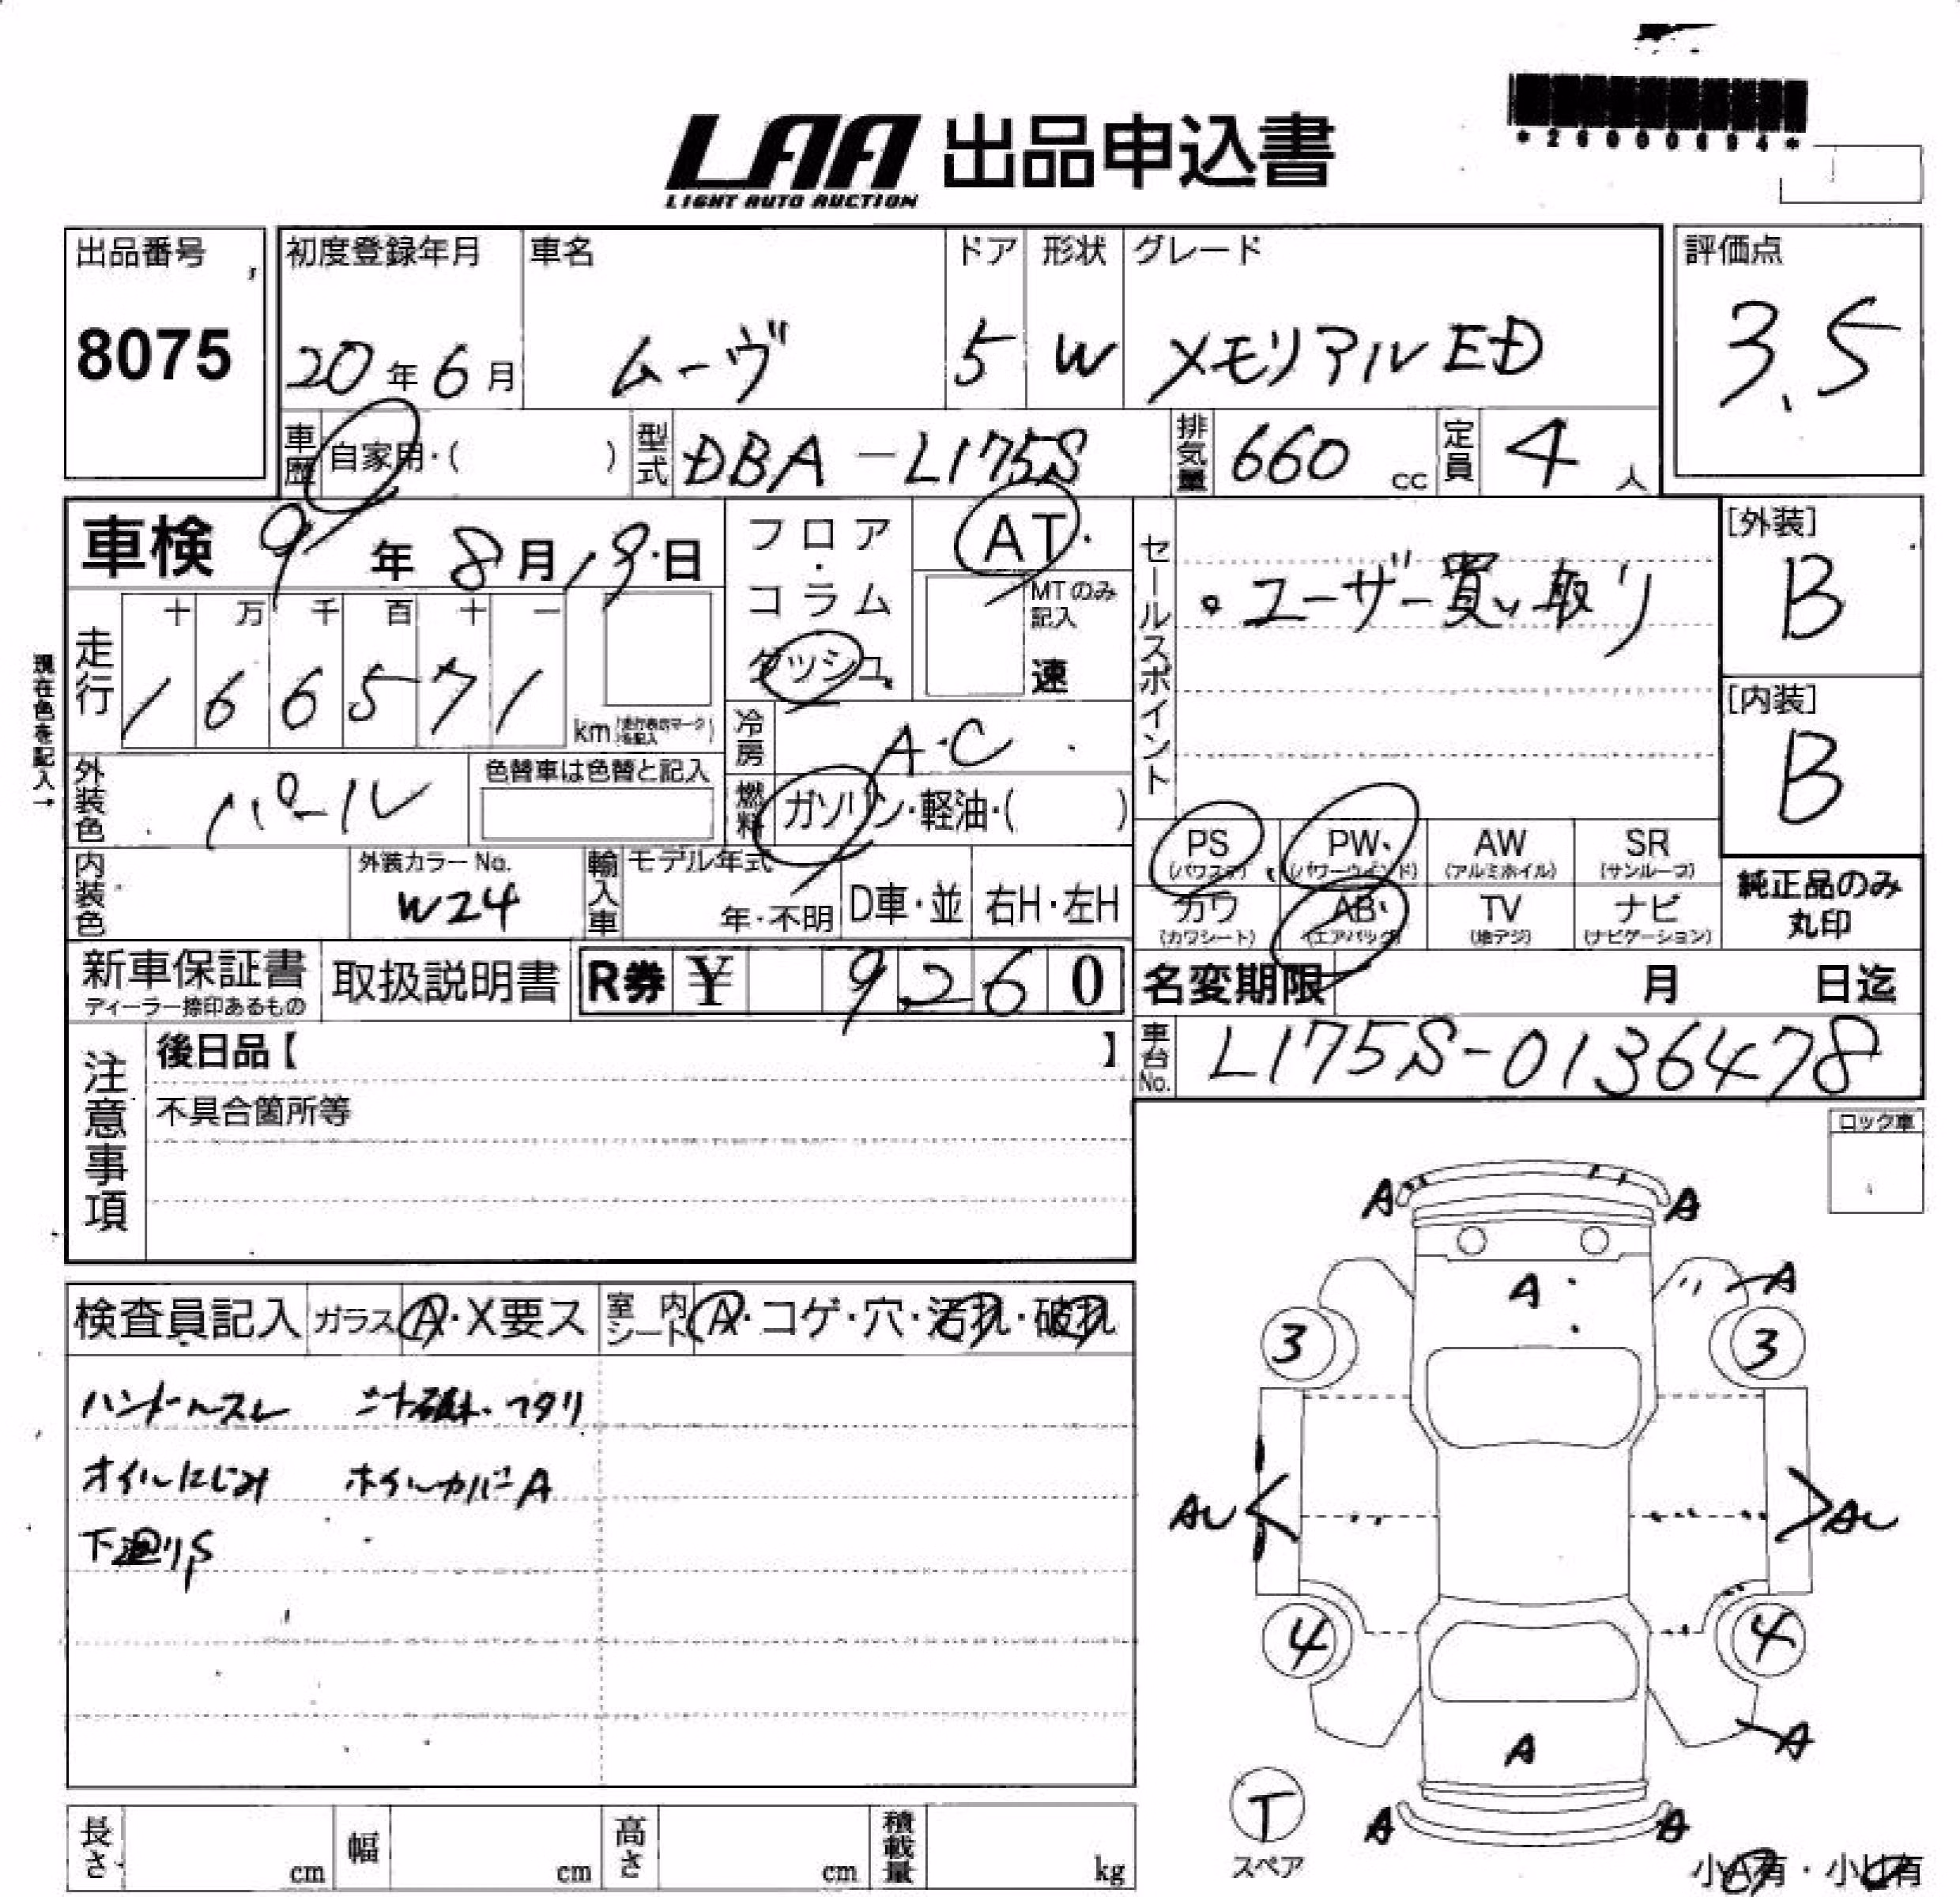 *26000694*
LAA 出品申込書
LIGHT AUTO AUCTION
出品番号 8075
初度登録年月 20年6月
車名 ムーヴ
ドア 5
形状 W
グレード メモリアルED
評価点 3.5
車歴 自家用・( )
型式 DBA-L175S
排気量 660 cc
定員 4 人
車検 9年8月19日
フロア・コラム ダッシュ
AT・
MTのみ記入 速
セールスポイント
・ユーザー買い取り
[外装] B
[内装] B
現在色を記入→
走行 十 万 千 百 十 一
1 6 6 5 7 1 km
冷房 A・C
外装色 パール
色替車は色替と記入
燃料 ガソリン・軽油・( )
内装色
外装カラーNo. W24
輸入車 モデル年式 年・不明 D車・並 右H・左H
PS (パワステ) PW (パワーウインド) AW (アルミホイル) SR (サンルーフ)
カワ (カワシート) AB (エアバッグ) TV (地デジ) ナビ (ナビゲーション)
純正品のみ丸印
新車保証書 ディーラー捺印あるもの
取扱説明書
R券 ¥ 9,260
名変期限 月 日迄
車台No. L175S-0136478
注意事項
後日品【 】
不具合箇所等
ロック車
検査員記入 ガラス A・X要ス 室内シート A・コゲ・穴・汚れ・破れ
ハンドルスレ
オイルにじみ ホイルカバーA
下廻りS
A A
A A
3 3
AU AU
4 4
A A
T
スペア
A A
小A有・小U有
長さ cm 幅 cm 高さ cm 積載量 kg